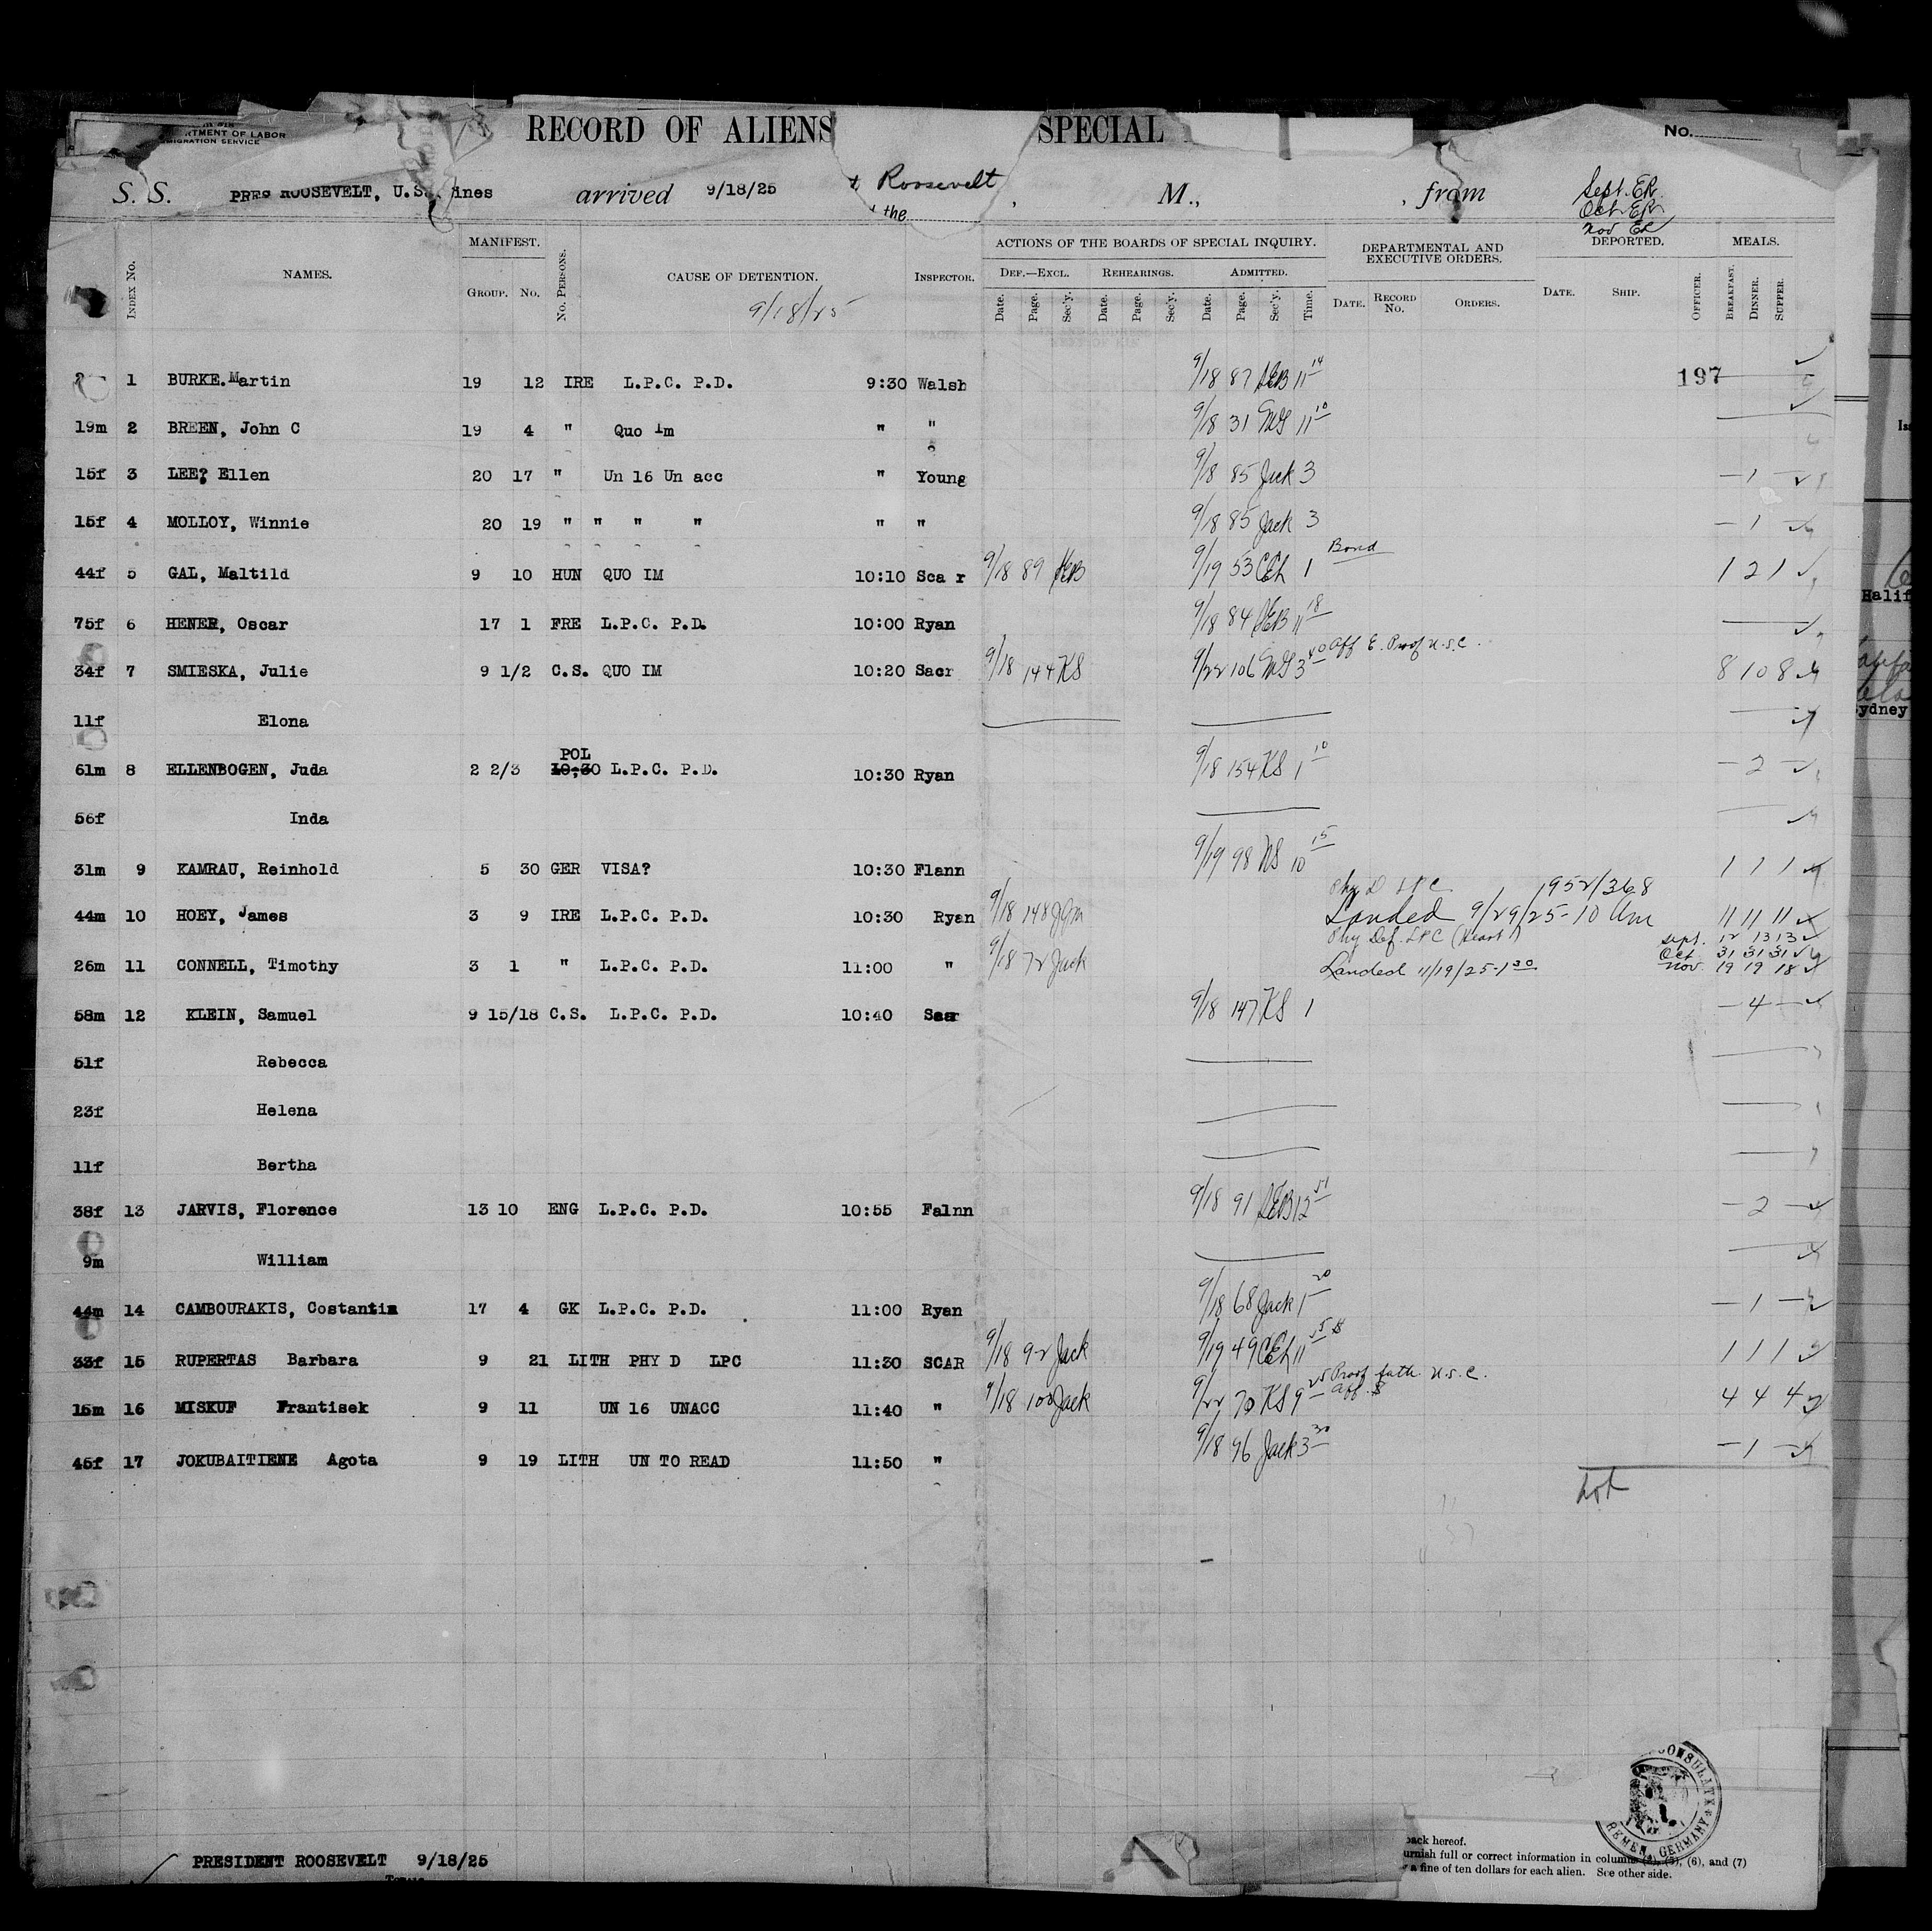 RTMENT OF LABOR
MIGRATION SERVICE
RECORD OF ALIENS SPECIAL
No.
S. S. PRES ROOSEVELT, U.S. ines arrived 9/18/25 Roosevelt , M., , from
the
Sept. ER
Oct ER
Nov ER
INDEX No. NAMES. MANIFEST. GROUP. No. No. PERSONS. CAUSE OF DETENTION. INSPECTOR.
9/18/25
ACTIONS OF THE BOARDS OF SPECIAL INQUIRY. DEPARTMENTAL AND EXECUTIVE ORDERS. DEPORTED. MEALS.
DEF.—EXCL. REHEARINGS. ADMITTED.
Date. Page. Sec'y. Date. Page. Sec'y. Date. Page. Sec'y. Time. DATE. RECORD No. ORDERS. DATE. SHIP. OFFICER. BREAKFAST. DINNER. SUPPER.
1 BURKE. Martin 19 12 IRE L.P.C. P.D. 9:30 Walsh 9/18 87 11 14 197
19m 2 BREEN, John C 19 4 " Quo Im " " 9/18 31 11 10
15f 3 LEE? Ellen 20 17 " Un 16 Un acc " Young 9/18 85 Jack 3 — 1 —
15f 4 MOLLOY, Winnie 20 19 " " " " " " 9/18 85 Jack 3 — 1 —
44f 5 GAL, Maltild 9 10 HUN QUO IM 10:10 Sca r 9/18 89 9/19 53 CEh 1 Bond 1 2 1
75f 6 HENER, Oscar 17 1 FRE L.P.C. P.D. 10:00 Ryan 9/18 84 11 18
34f 7 SMIESKA, Julie 9 1/2 C.S. QUO IM 10:20 Sacr 9/18 144 KS 9/22 106 3 40 Aff E. Proof U.S.C. 8 10 8
11f Elona
POL
61m 8 ELLENBOGEN, Juda 2 2/3 10:30 L.P.C. P.D. 10:30 Ryan 9/18 154 KS 1 10 — 2 —
56f Inda
31m 9 KAMRAU, Reinhold 5 30 GER VISA? 10:30 Flann 9/19 98 KS 10 15 1 1 1
Phy D LPC 1952/368
44m 10 HOEY, James 3 9 IRE L.P.C. P.D. 10:30 Ryan 9/18 148 Landed 9/29/25-10 Am 11 11 11
Phy Def. LPC (Heart) Sept. 12 13 13
Oct 31 31 31
26m 11 CONNELL, Timothy 3 1 " L.P.C. P.D. 11:00 " 9/18 72 Jack Landed 11/19/25-1 30 Nov. 19 19 18
58m 12 KLEIN, Samuel 9 15/18 C.S. L.P.C. P.D. 10:40 Saar 9/18 147 KS 1 — 4 —
51f Rebecca
23f Helena
11f Bertha
38f 13 JARVIS, Florence 13 10 ENG L.P.C. P.D. 10:55 Falnn 9/18 91 12 51 — 2 —
9m William
44m 14 CAMBOURAKIS, Costantin 17 4 GK L.P.C. P.D. 11:00 Ryan 9/18 68 Jack 1 20 — 1 —
33f 15 RUPERTAS Barbara 9 21 LITH PHY D LPC 11:30 SCAR 9/18 92 Jack 9/19 49 CEh 11 55 $ 1 1 1
15m 16 MISKUF Frantisek 9 11 UN 16 UNACC 11:40 " 9/18 100 Jack 9/22 70 KS 9 25 Proof fath. U.S.C. Aff. $ 4 4 4
45f 17 JOKUBAITIENE Agota 9 19 LITH UN TO READ 11:50 " 9/18 96 Jack 3 30 — 1 —
Halif
ydney
PRESIDENT ROOSEVELT 9/18/25
back hereof.
urnish full or correct information in columns (5), (6), and (7)
a fine of ten dollars for each alien. See other side.
CONSULATE
REMEN, GERMANY